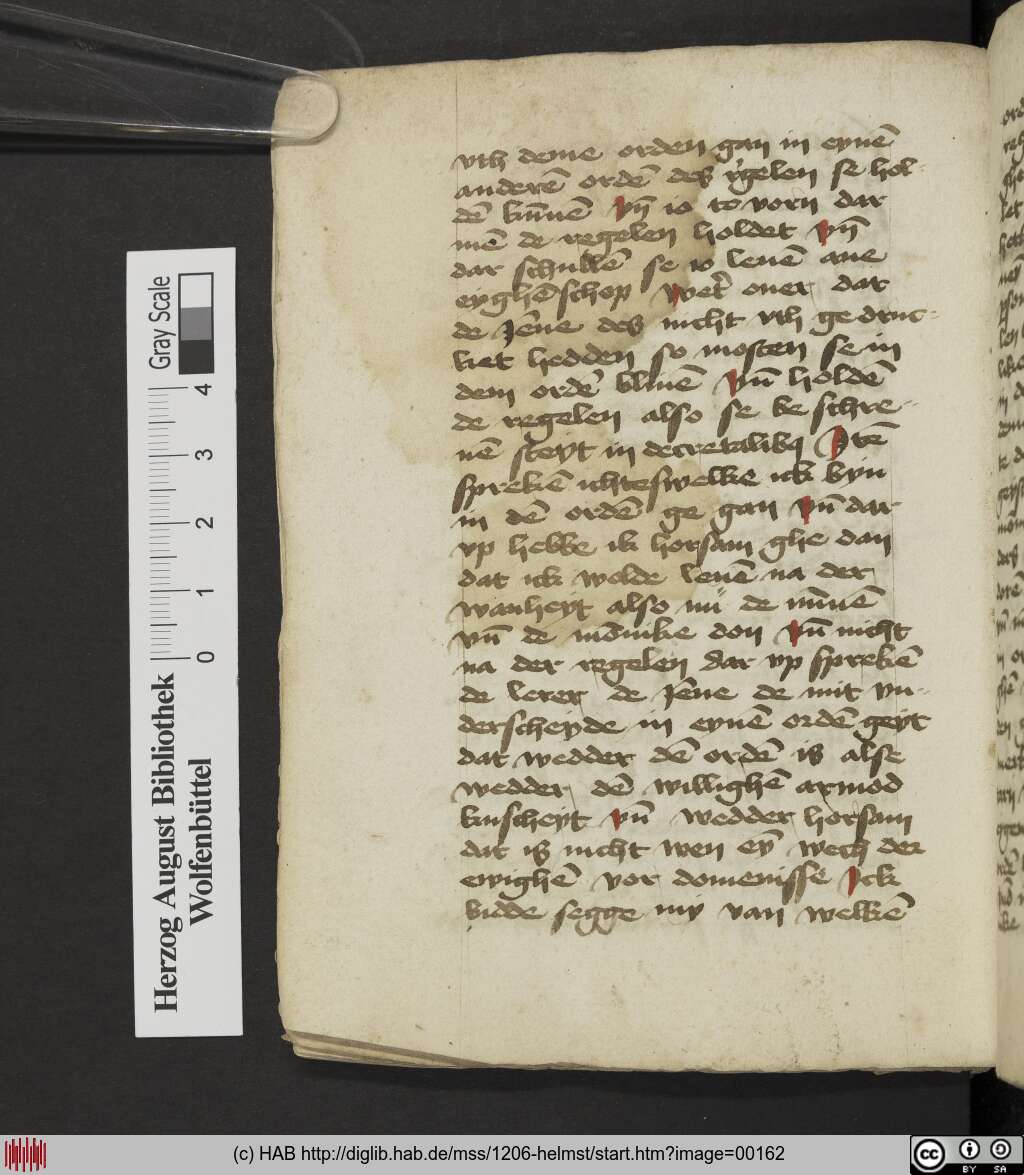 vth deme orden gan in eynē
anderē ordē des regelen se hol
dē kūnē vn̄ io to vorn dar
mē de regelen holdet vn̄
dar schullē se io leuē ane
eyghēschop wet ouer dat
de Jēne des nicht vth ge druc
ket hedden so mosten se in
dem ordē bliuē vn̄ holdē
de regelen also se be schre
uē steyt in decretalibꝫ Itē
sprekē ichteswelke ick byn
in dē ordē ge gan vn̄ dar
vp hebbe ik horsam ghe dan
dat ick wolde leuē na der
wanheyt also nu de nūnē
vn̄ de monike don vn̄ nicht
na der regelen dar vp sprekē
de lerer de Jēne de mit vn
derscheyde in eynē ordē geyt
dat wedder dē ordē is alse
wedder dē willighē armod
kuscheyt vn̄ wedder horsam
dat is nicht wen eȳ wech der
ewighē vor domenisse Ick
bidde segge my van welkē
Herzog August Bibliothek
Wolfenbüttel
0 1 2 3 4
Gray Scale
(c) HAB http://diglib.hab.de/mss/1206-helmst/start.htm?image=00162
cc BY SA